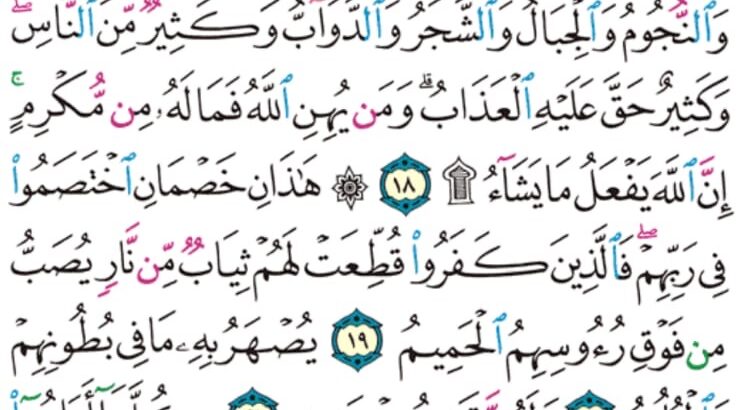 وَٱلنُّجُومُ وَٱلْجِبَالُ وَٱلشَّجَرُ وَٱلدَّوَآبُّ وَكَثِيرٌ مِّنَ ٱلنَّاسِۖ
وَكَثِيرٌ حَقَّ عَلَيْهِ ٱلْعَذَابُۗ وَمَن يُهِنِ ٱللَّهُ فَمَا لَهُۥ مِن مُّكْرِمٍۚ
إِنَّ ٱللَّهَ يَفْعَلُ مَا يَشَآءُ ۩ ١٨ ۞ هَٰذَانِ خَصْمَانِ ٱخْتَصَمُوا۟
فِى رَبِّهِمْۖ فَٱلَّذِينَ كَفَرُوا۟ قُطِّعَتْ لَهُمْ ثِيَابٌ مِّن نَّارٍ يُصَبُّ
مِن فَوْقِ رُءُوسِهِمُ ٱلْحَمِيمُ ١٩ يُصْهَرُ بِهِۦ مَا فِى بُطُونِهِمْ